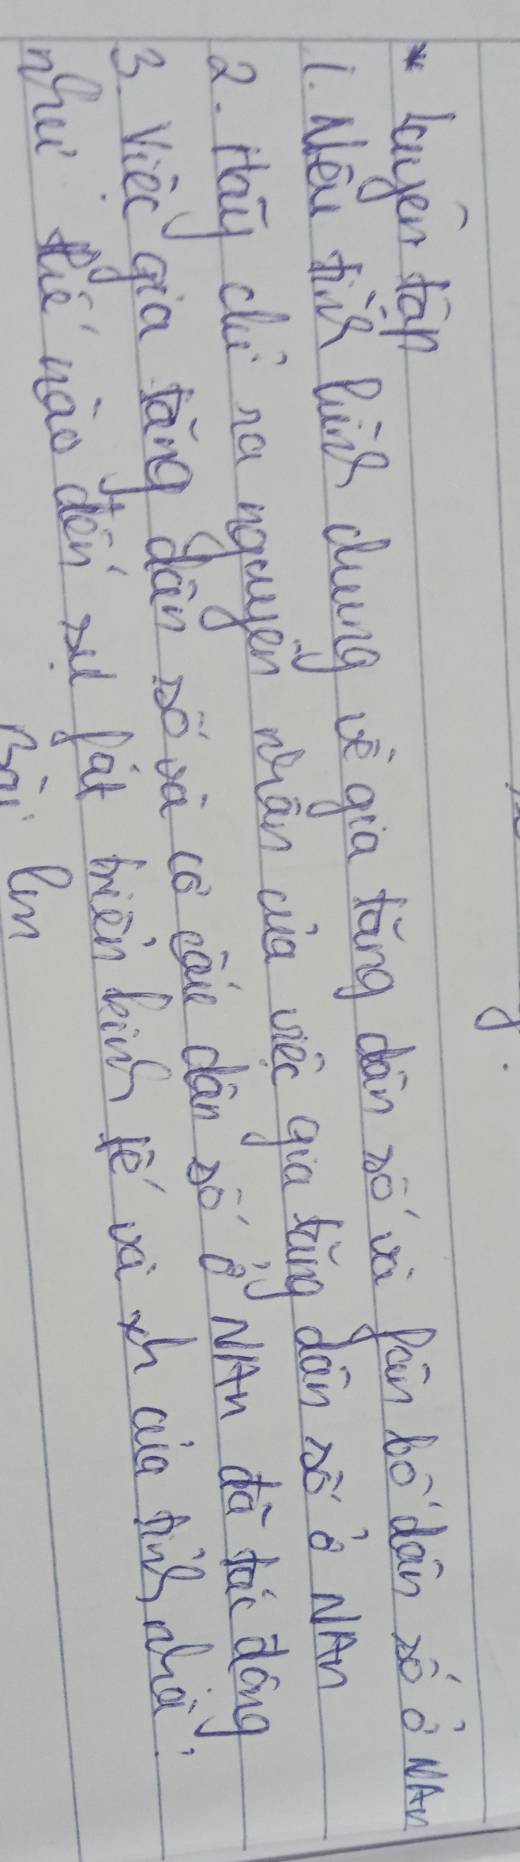 * Luyện tập
1. Nêu tình hình chung về gia tăng dân số và fân bố dân số ở NAn
2. Hãy chỉ ra nguyên nhân của việc gia tăng dân số ở NAn
3. Việc gia tăng dân số và cơ cấu dân số ở NAn đã tác động
như thế nào đến sự fát triển kinh tế và xh của tỉnh nhà.
Bài lm